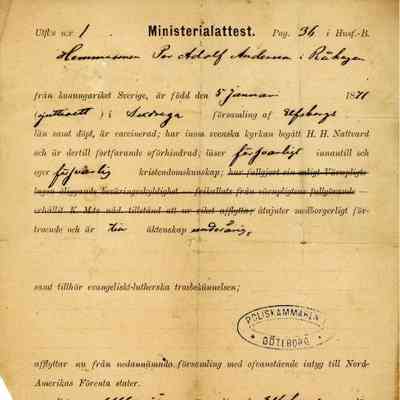 Utfls n:r 1. Ministerialattest. Pag. 36 i Husf.-B.
Hemmasonen Per Adolf Anderson i Råhagen
från konungariket Sverige, är född den 5 Januari 1871
( ) i församling af Elfsborgs
län samt döpt, är vaccinerad; har inom svenska kyrkan begått H. H. Nattvard
och är dertill fortfarande oförhindrad; läser försvarligt innantill och
eger försvarlig kristendomskunskap; har fullgjort sin enligt Värnpligts-
lagen åliggande Beväringsskyldighet — frikallats från värnpligtens fullgörande —
erhållit K. M:ts nåd. tillstånd att ur riket afflytta; åtnjuter medborgerligt för-
troende och är till äktenskap underårig,
samt tillhör evangeliskt-lutherska trosbekännelsen;
POLISKAMMAREN
GÖTEBORG
afflyttar nu från nedannämnda församling med ofvanstående intyg till Nord-
Amerikas Förenta stater.